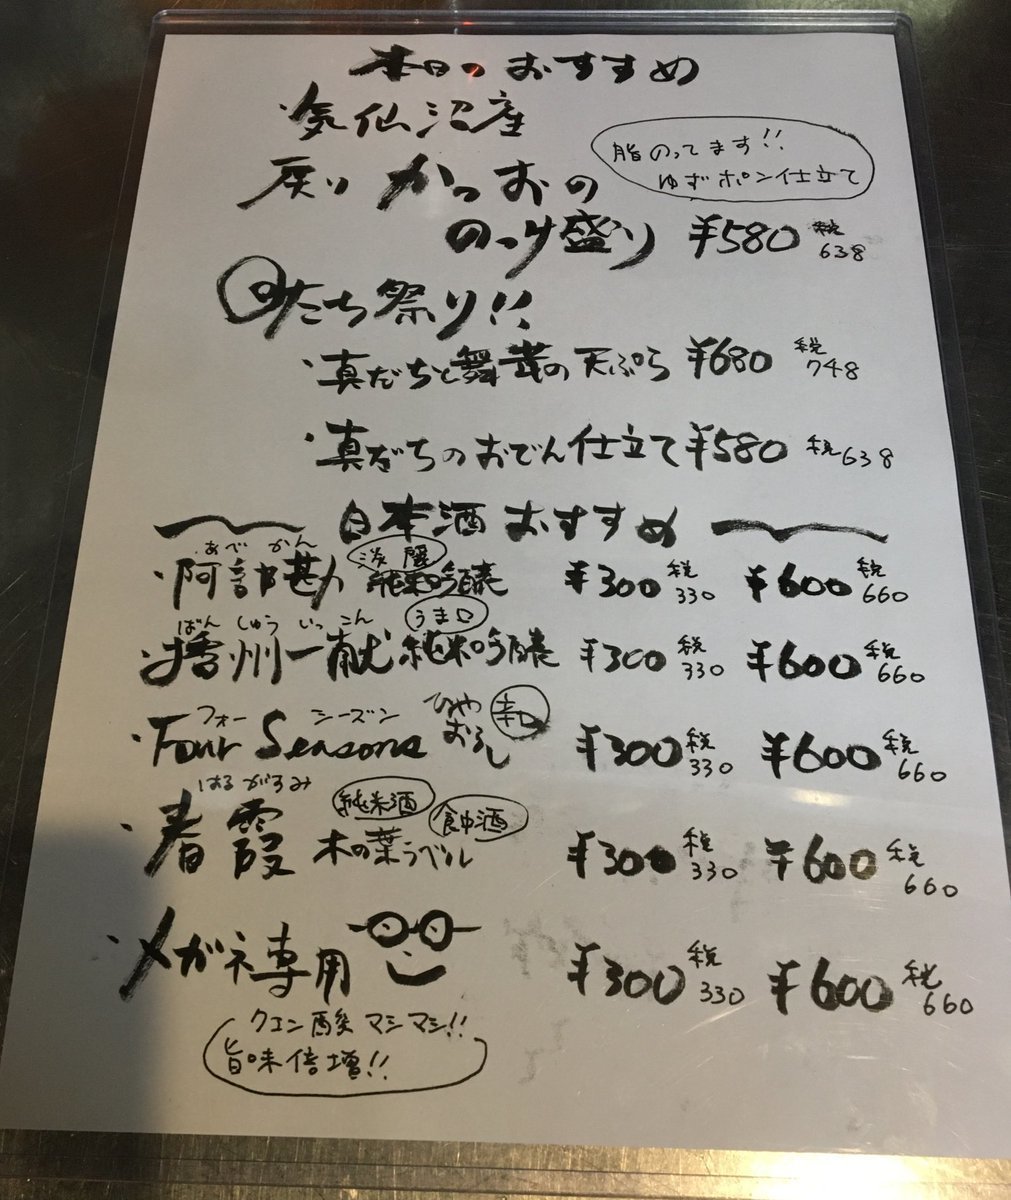 本日のおすすめ
・気仙沼産
戻りかつおの
のっけ盛り ¥580 税638
脂のってます!!
ゆずポン仕立て
たち祭り!!
・真だちと舞茸の天ぷら ¥680 税748
・真だちのおでん仕立て ¥580 税638
日本酒おすすめ
あべ かん
・阿部勘 淡麗 純米吟醸 ¥300 税330 ¥600 税660
ばん しゅう いっ こん
・播州一献 うま口 純米吟醸 ¥300 税330 ¥600 税660
フォー シーズン
・Four Seasons ひやおろし 辛口 ¥300 税330 ¥600 税660
はるがすみ
・春霞 純米酒 食中酒 木の葉ラベル ¥300 税330 ¥600 税660
・メガネ専用 ¥300 税330 ¥600 税660
クエン酸マシマシ!!
旨味倍増!!